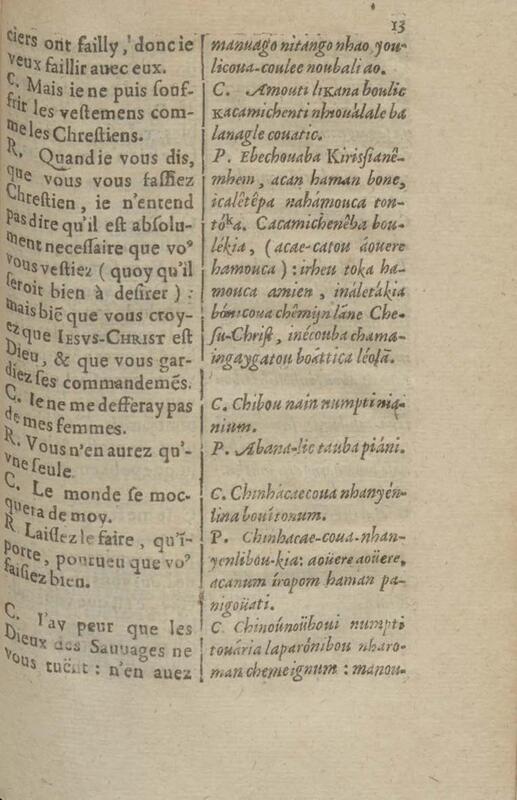 13
ciers ont failly, donc ie
veux faillir auec eux.
C. Mais ie ne puis souf-
frir les vestemens com-
me les Chrestiens.
R. Quand ie vous dis,
que vous vous fassiez
Chrestien, ie n'entend
pas dire qu'il est absolu-
ment necessaire que vo⁹
vous vestiez (quoy qu'il
seroit bien à desirer) :
mais biē que vous croy-
ez que IESVS-CHRIST est
Dieu, & que vous gar-
diez ses commandemēs.
C. Ie ne me defferay pas
de mes femmes.
R. Vous n'en aurez qu'-
vne seule.
C. Le monde se moc-
quera de moy.
R. Laissez le faire, qu'ī-
porte, pourueu que vo⁹
faisiez bien.
C. I'ay peur que les
Dieux des Sauuages ne
vous tuënt : n'en auez
manuago nitango nhao you-
licoua-coulee noubali ao.
C. Amouti likana boulic
kacamichenti nhouàlale ba
lanagle couatic.
P. Ebechouaba Kirissianê-
mhem, acan haman bone,
icalêtêpa nahámouca ton-
tóka. Cacamichenêba bou-
lékia, (acae-catou áouere
hamouca) : irheu toka ha-
mouca amien, inàletàkia
bónicoua chêmijn làne Che-
su-Christ, inécouba chama-
ingaygatou boáttica léolà.
C. Chibou nain numpti nia-
nium.
P. Abana-lic tauba piáni.
C. Chinhácaecoua nhanyén-
lina bouítonum.
P. Chinhacae-coua-nhan-
yenlibou-kia: aoüere aoüere,
acanum íropom haman pa-
nigoüati.
C. Chinoúnoüboui numpti
touária laparónibou nharo-
man chemeignum : manou-